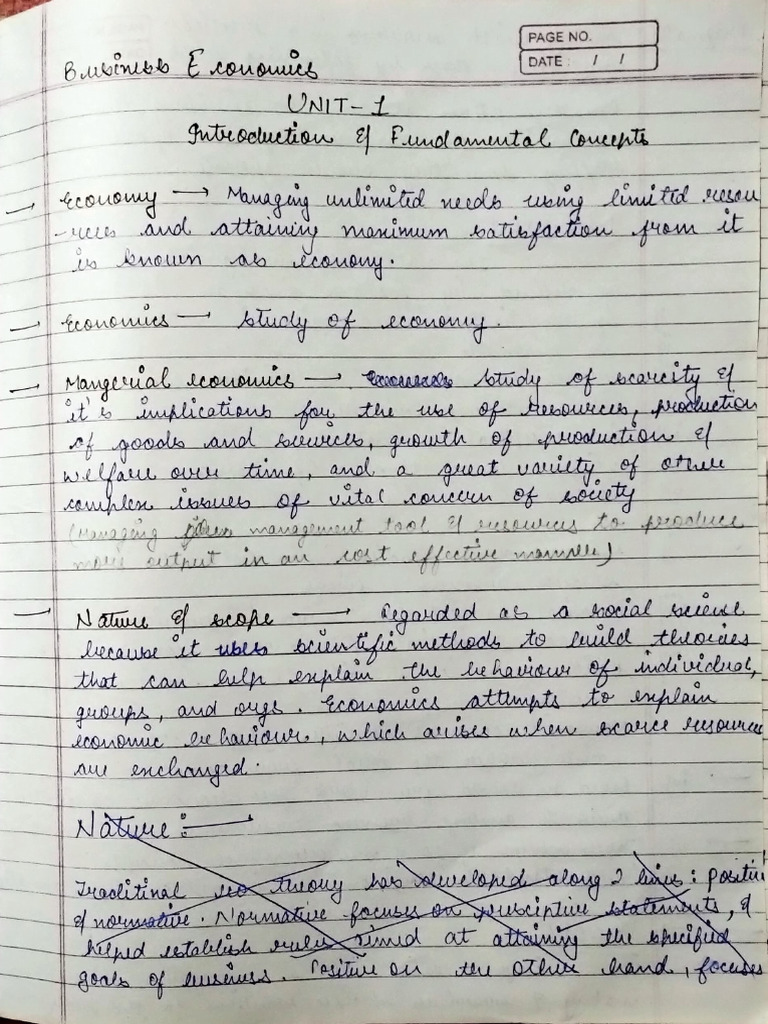 PAGE NO.
DATE : / /
Business Economics
UNIT-1
Introduction & Fundamental Concepts
→ Economy → Managing unlimited needs using limited resou
-rces and attaining maximum satisfaction from it
is known as economy.
→ Economics → study of economy.
→ Mangerial economics → study of scarcity &
it's implications for the use of resources, production
of goods and services, growth of production &
welfare over time, and a great variety of other
complex issues of vital concern of society
(Managing management tool & resources to produce
more output in an cost effective manner)
→ Nature & scope → Regarded as a social science
because it uses scientific methods to build theories
that can help explain the behaviour of individual,
groups, and orgs. Economics attempts to explain
economic behaviour, which arises when scarce resources
are exchanged.
Nature :→
Traditinal eco theory has developed along 2 lines : positiv
& normative. Normative focuses on prescriptive statements, &
helped establish rules aimed at attaining the specified
goals of business. Positive on the other hand, focuses